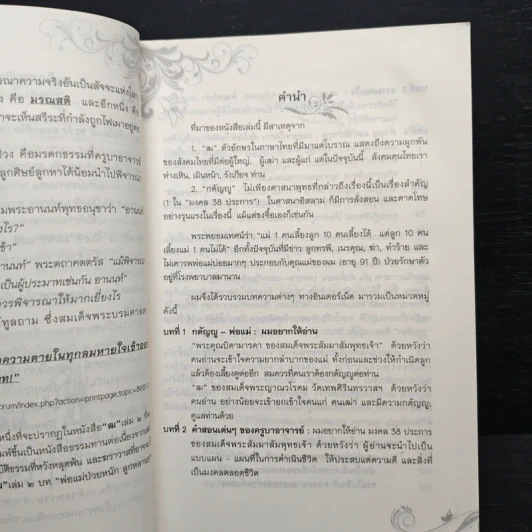 รณาความจริงอันเป็นสัจจะแห่งโลก
คือ มรณสติ และอีกหนึ่ง คือ
าจะเห็นสรีระที่กำลังถูกไฟเผาย
วง คือมรดกธรรมที่ครูบาอาจารย์
ลูกศิษย์ลูกหาได้น้อมนำไปพิจารณา
มพระอานนท์พุทธอนุชาว่า "อานนท์
ังไร?"
ข้า"
นนท์" พระตถาคตตรัส "แม้พิจารณา
เป็นผู้ประมาทเช่นกัน อานนท์"
ควรพิจารณาให้มากเยี่ยงไร
ทูลถาม ซึ่งสมเด็จพระบรมศาส
ความตายในทุกลมหายใจเข้าออก
าท!"
orum/index.php?action=printpage;topic=868.
หนึ่งที่จะปรากฏในหนังสือ"ฒ"เล่ม ๒ ที่
มพ์ขึ้นเป็นหนังสือธรรมทานต่อเนื่องจาก
บัติธรรมที่หวังหลุดพ้น และฆราวาสที่อาจ
เล่ม ๒ บท "พ่อแม่ป่วยหนัก ลูกหลาน
คำนำ
ที่มาของหนังสือเล่มนี้ มีสาเหตุจาก
1. "ฒ" ตัวอักษรในภาษาไทยที่มีมาแต่โบราณ แสดงถึงความผูกพัน
ของสังคมไทยที่มีต่อผู้ใหญ่, ผู้เฒ่า และผู้แก่ แต่ในปัจจุบันนี้ สังคมคนไทยเรา
ห่างเหิน, เมินหน้า, รังเกียจ ท่าน
2. "กตัญญู" ไม่เพียงศาสนาพุทธที่กล่าวถึงเรื่องนี้เป็นเรื่องสำคัญ
(1 ใน "มงคล 38 ประการ") ในศาสนาอิสลาม ก็มีการสั่งสอน และคาดโทษ
อย่างรุนแรงในเรื่องนี้ แม้แต่ชงจื๊อเองก็เช่นกัน
พระพยอมเทศน์ว่า "แม่ 1 คนเลี้ยงลูก 10 คนเลี้ยงได้ แต่ลูก 10 คน
เลี้ยงแม่ 1 คนไม่ได้" อีกทั้งปัจจุบันที่มีข่าว ลูกทรพี, เนรคุณ, ฆ่า, ทำร้าย และ
ไม่เคารพพ่อแม่บ่อยมากๆ ประกอบกับคุณแม่ของผม (อายุ 91 ปี) ป่วยรักษาตัว
อยู่ที่โรงพยาบาลมานาน
ผมจึงได้รวบรวมบทความต่างๆ ทางอินเตอร์เน็ต มารวมเป็นหมวดหมู่
ดังนี้
บทที่ 1 กตัญญู – พ่อแม่ : ผมอยากให้อ่าน
"พระคุณบิดามารดา ของสมเด็จพระสัมมาสัมพุทธเจ้า" ด้วยหวังว่า
คนอ่านจะเข้าใจความยากลำบากของแม่ ทั้งก่อนและช่วงให้กำเนิดลูก
แล้วต้องเลี้ยงดูต่ออีก สมควรที่คนเราต้องกตัญญูต่อท่าน
"ฒ" ของสมเด็จพระญาณวโรดม วัดเทพศิรินทราวาสฯ ด้วยหวังว่า
คนอ่าน อย่างน้อยจะเข้าอกเข้าใจคนแก่ คนเฒ่า และมีความกตัญญู,
ดูแลท่านด้วย
บทที่ 2 คำสอนเด่นๆ ของครูบาอาจารย์ : ผมอยากให้อ่าน มงคล 38 ประการ
ของสมเด็จพระสัมมาสัมพุทธเจ้า ด้วยหวังว่า ผู้อ่านจะนำไปเป็น
แบบแผน - แผนที่ในการดำเนินชีวิต ให้ประสบแต่ความดี และสิ่งที่
เป็นมงคลตลอดชีวิต